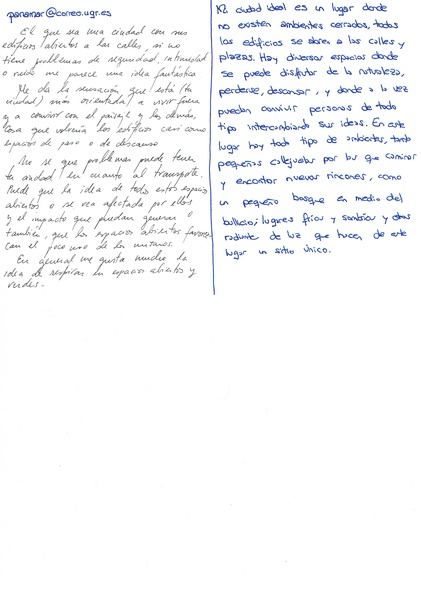 panamar@correo.ugr.es
El que sea una ciudad con sus
edificios abiertos a las calles, si no
tiene problemas de seguridad, intimidad
o ruido me parece una idea fantástica
Me da la sensación que está (tu
ciudad) más orientada a vivir fuera
y a convivir con el paisaje y los demás,
cosa que volvería los edificios casi como
espacios de paso o de descanso
No se que problemas puede tener
tu ciudad en cuanto al transporte.
Puede que la idea de todos estos espacios
abiertos o se vea afectada por ellos
y el impacto que puedan generar o
también, que los espacios abiertos favorez-
can el poco uso de los mismos.
En general me gusta mucho la
idea de respirar en espacios abiertos y
verdes.
Mi ciudad ideal es un lugar donde
no existen ambientes cerrados, todos
los edificios se abren a las calles y
plazas. Hay diversos espacios donde
se puede disfrutar de la naturaleza,
perderse, descansar, y donde a la vez
puedan convivir personas de todo
tipo intercambiando sus ideas. En este
lugar hay todo tipo de ambientes, tanto
pequeños callejuelas por las que caminar
y encontrar nuevos rincones, como
un pequeño bosque en medio del
bullicio; lugares fríos y sombríos y otros
radiante de luz que hacen de este
lugar un sitio único.